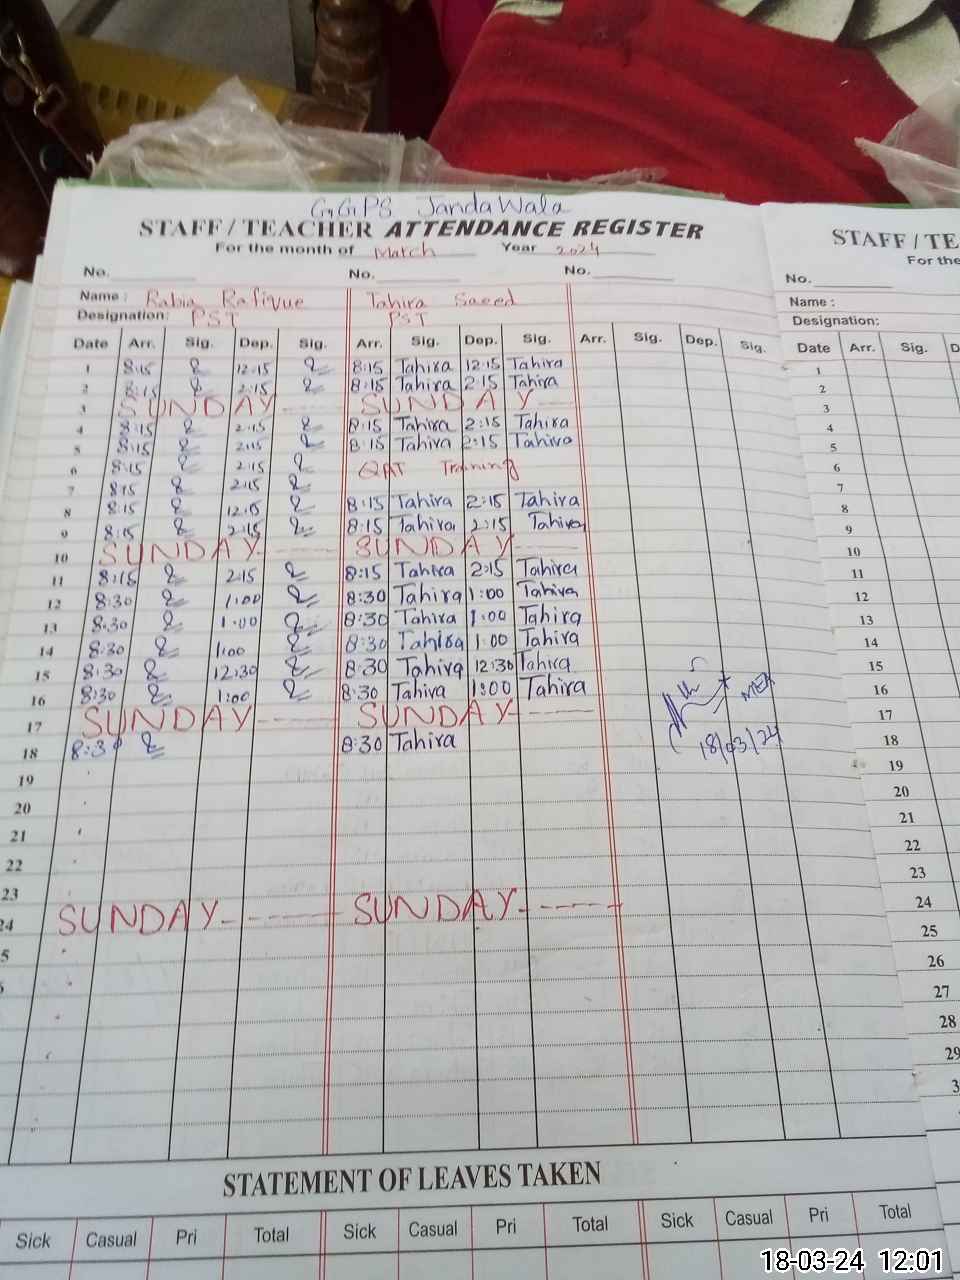 GGPS JandaWala
STAFF / TEACHER ATTENDANCE REGISTER
For the month of March Year 2024
No. No. No.
Name : Rabia Rafique Tahira Saeed
Designation: PST PST
Date Arr. Sig. Dep. Sig. Arr. Sig. Dep. Sig. Arr. Sig. Dep. Sig.
1 8:15 12:15 8:15 Tahira 12:15 Tahira
2 8:15 2:15 8:15 Tahira 2:15 Tahira
3 SUNDAY SUNDAY
4 8:15 2:15 8:15 Tahira 2:15 Tahira
5 8:15 2:15 8:15 Tahira 2:15 Tahira
6 8:15 2:15 QAT Training
7 8:15 2:15
8 8:15 12:15 8:15 Tahira 2:15 Tahira
9 8:15 2:15 8:15 Tahira 2:15 Tahira
10 SUNDAY SUNDAY
11 8:15 2:15 8:15 Tahira 2:15 Tahira
12 8:30 1:00 8:30 Tahira 1:00 Tahira
13 8:30 1:00 8:30 Tahira 1:00 Tahira
14 8:30 1:00 8:30 Tahira 1:00 Tahira
15 8:30 12:30 8:30 Tahira 12:30 Tahira
16 8:30 1:00 8:30 Tahira 1:00 Tahira
MEA
17 SUNDAY SUNDAY
18 8:30 8:30 Tahira 18/03/24
19
20
21
22
23
24 SUNDAY SUNDAY
5
STATEMENT OF LEAVES TAKEN
Sick Casual Pri Total Sick Casual Pri Total Sick Casual Pri Total
STAFF / TE
For the
No.
Name :
Designation:
Date Arr. Sig. D
1
2
3
4
5
6
7
8
9
10
11
12
13
14
15
16
17
18
19
20
21
22
23
24
25
26
27
28
29
3
18-03-24 12:01